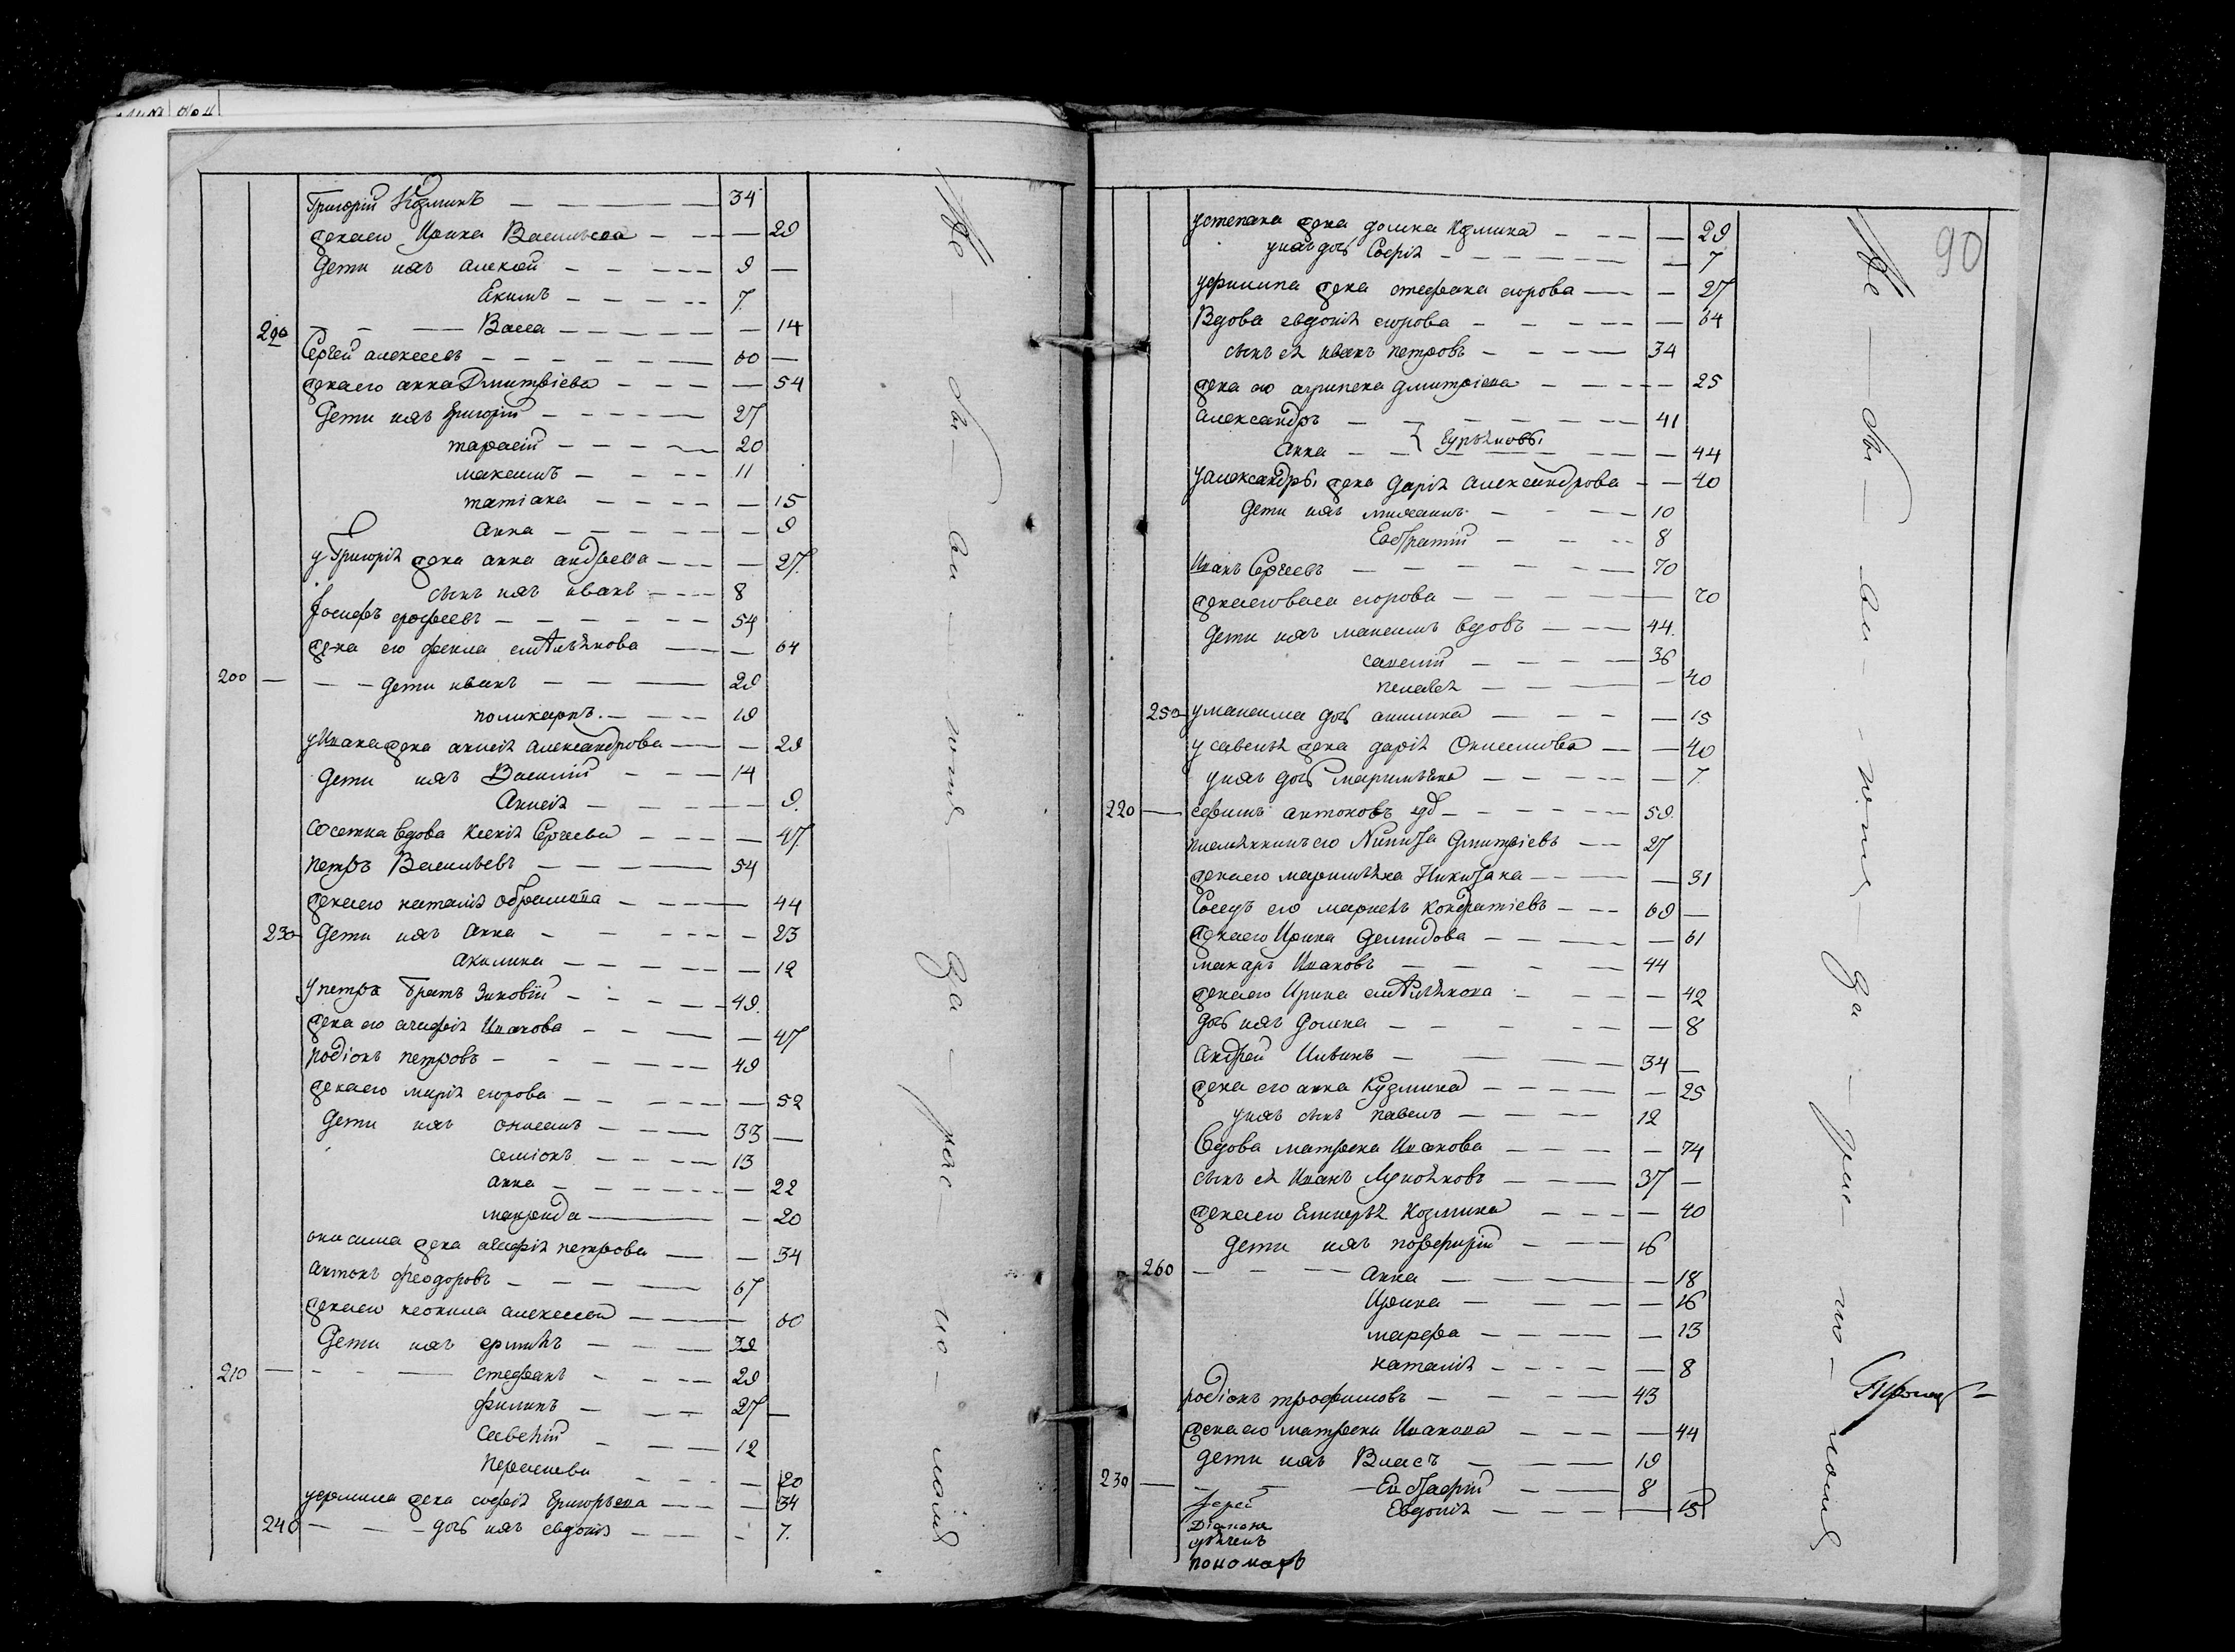 Григорій Козминъ — 34
жена его Ирина Васильева — 29
Дети ихъ алексей — 9 —
Екимъ — 7.
220 — Васса — 14
Сергей алексеевъ — 60 —
жена его анна Дмитріева — 54
Дети ихъ григорій — 27
тарасій — 20
максимъ — 11
татіана — 15
Анна — 9
у Григорія жена анна андреева — 27.
сынъ ихъ иванъ — 8
Іосифъ ерофеевъ — 54
жена его фекла емельянова — 64
200 — дети иванъ — 29
поликарпъ. — 19
у Ивана жена аксинья александрова — 29
Дети ихъ Василій — 14
Аксинья — 9.
вдова Ксенія Сергеева — 47.
петръ Васильевъ — 54
жена его наталия абрамова — 44
230 Дети ихъ Анна — 23
Акилина — 12
у петра братъ Зиновій — 49.
жена его агафія Иванова — 47
родіонъ петровъ — 49
жена его марія егорова — 52
Дети ихъ онисимъ — 33 —
семіонъ — 13
анна — 22
макрида — 20
онисима жена агафія петрова — 34
антонъ феодоровъ — 67
жена его неонила алексеева — 60
Дети ихъ ермилъ — 39
210 — стефанъ — 29
филипъ — 27 —
Савелій — 12
Парасковия — 20
у ермила жена софія Григорьева — 34
240 — дочь ихъ евдокия — 7.
90
у степана жена домна Козмина — 29
у нихъ дочь Софія — 7
у филипа жена стефанида егорова — 27
Вдова евдокія егорова — 64
сынъ ея иванъ петровъ — 34
жена его агрипена дмитріева — 25
александръ — 41
Анна — 44
у александра жена Дарія Александрова — 40
Дети ихъ — 10
— 8
Иванъ Сергеевъ — 70
жена его васа егорова — 70
Дети ихъ максимъ вдовъ — 44.
савелій — 36
пелагея — 40
250 у максима дочь акилина — 15
у савелья жена дарія Онисимова — 40
у нихъ дочь маримьяна — 7.
220 — ефимъ антоновъ вдовъ — 59.
племянникъ его Никита Дмитріевъ — 27
жена его маримьяна Никитина — 31
Соседъ его Кондратіевъ — 69 —
жена его Ирина Демидова — 61
макаръ Ивановъ — 44
жена его Ирина емельянова — 42
дочь ихъ Домна — 8
андрей — 34 —
жена его анна Кузмина — 25
у нихъ сынъ павелъ — 12
Вдова матрена Иванова — 74
сынъ ея Иванъ Лукояновъ — 37 —
жена его Козмина — 40
Дети ихъ порфирій — 16
260 — Анна — 18
Ирина — 16
марфа — 13
наталія — 8
родіонъ трофимовъ — 43
жена его матрена Иванова — 44
Дети ихъ Власъ — 19
230 — Евстафій — 8
Евдокія — 15
Іерей
Діаконъ
дьячекъ
пономарь